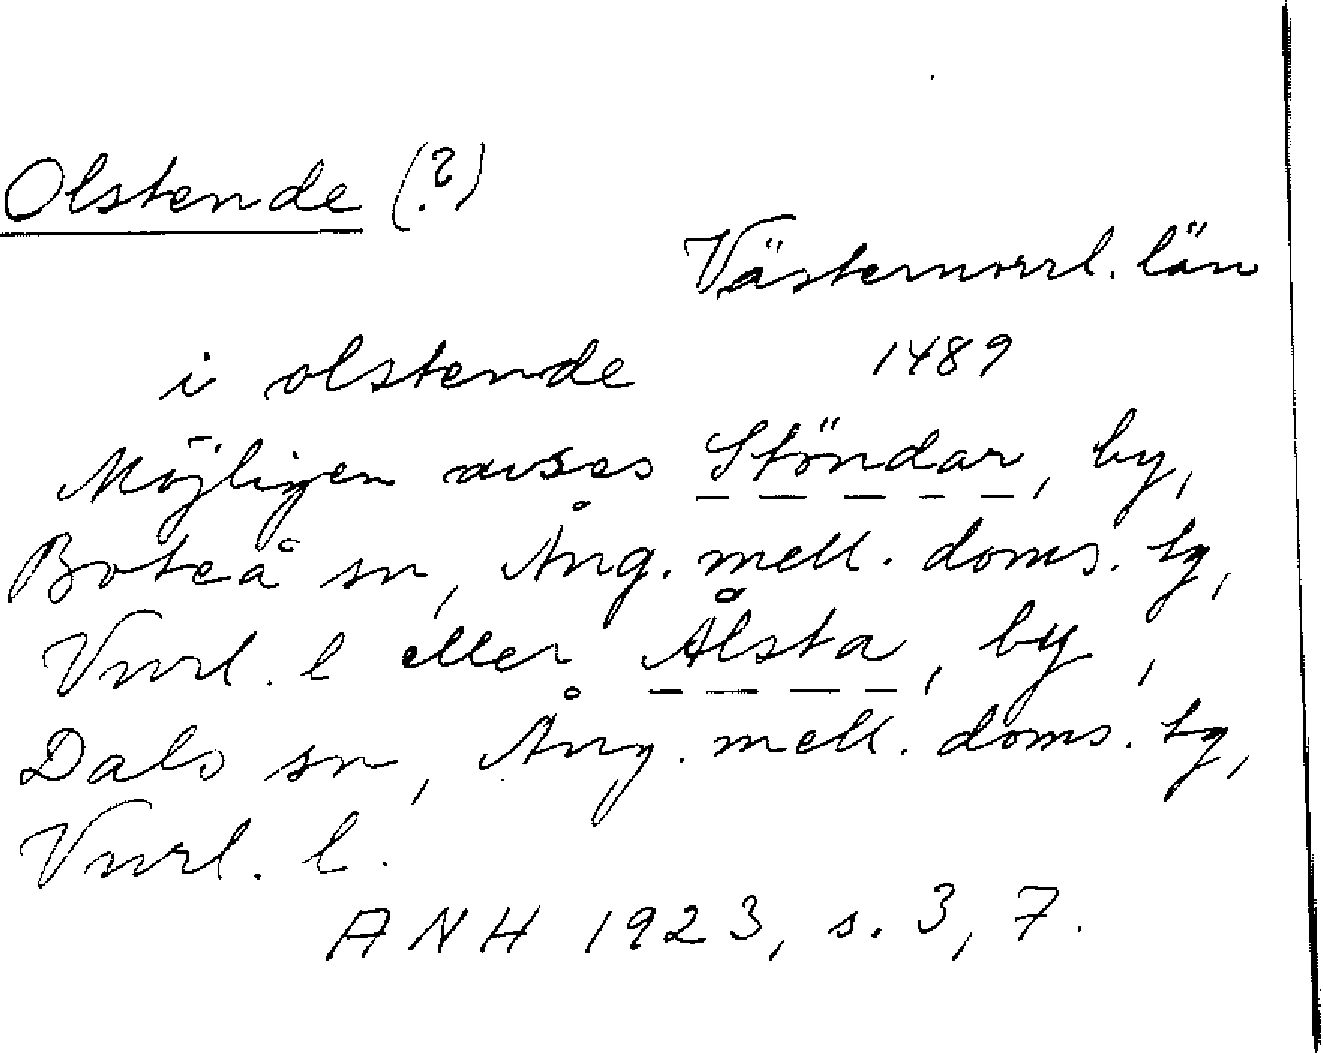 Olstende (?)
Västernorrl. län
i olstende 1489
Möjligen avses Ständar, by,
Boteå sn, Ång. mell. doms. tg,
Vnrl. l eller Ålsta, by,
Dals sn, Ång. mell. doms. tg,
Vnrl. l.
ANH 1923, s. 3, 7.